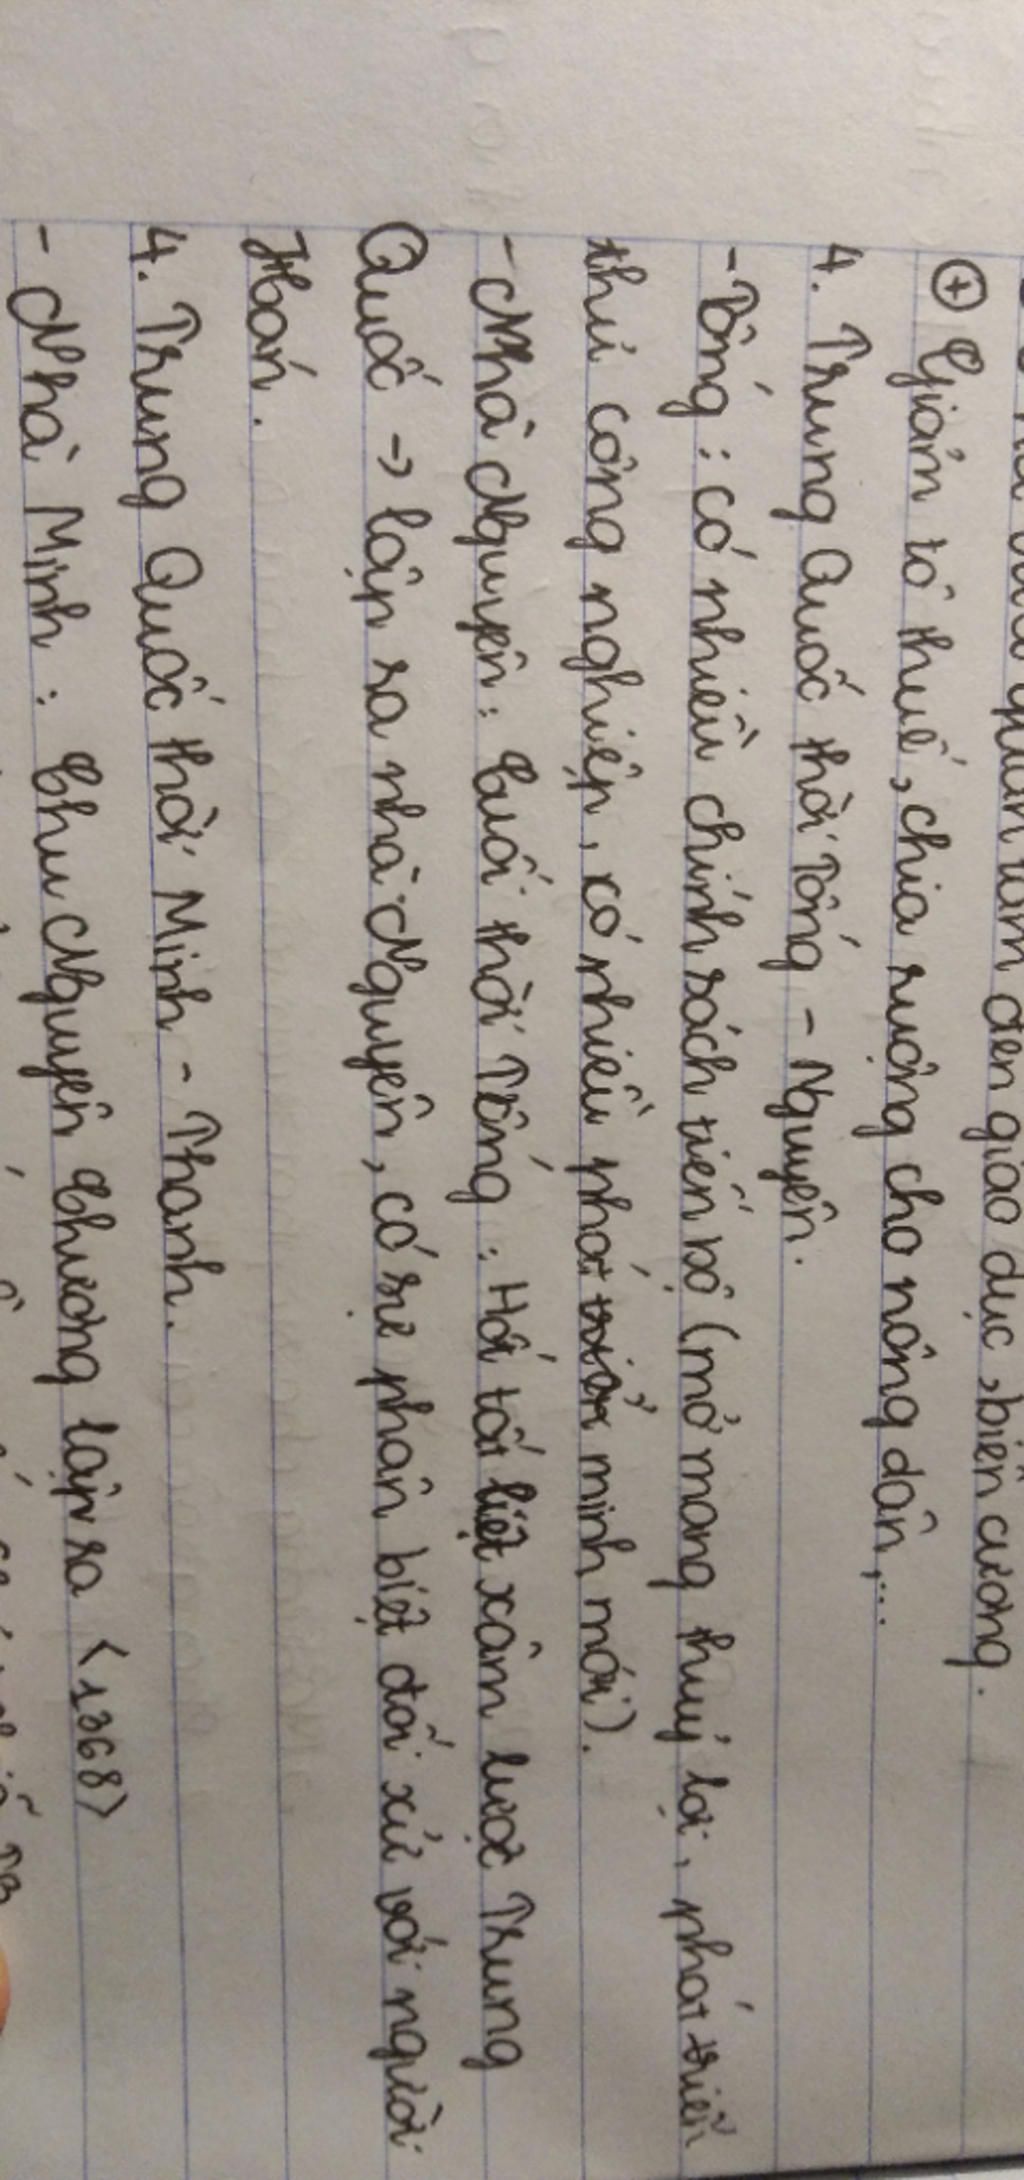 quan tâm đến giáo dục, biên cương.
⊕ Giảm tô thuế, chia ruộng cho nông dân,...
4. Trung Quốc thời Tống - Nguyên.
- Tống: có nhiều chính sách tiến bộ (mở mang thuỷ lợi, phát triển
thủ công nghiệp, có nhiều phát minh mới).
- Nhà Nguyên: Cuối thời Tống: Hốt tất liệt xâm lược Trung
Quốc -> lập ra nhà Nguyên, có sự phân biệt đối xử với người
Hán.
4. Trung Quốc thời Minh - Thanh.
- Nhà Minh: Chu Nguyên Chương lập ra <1368>